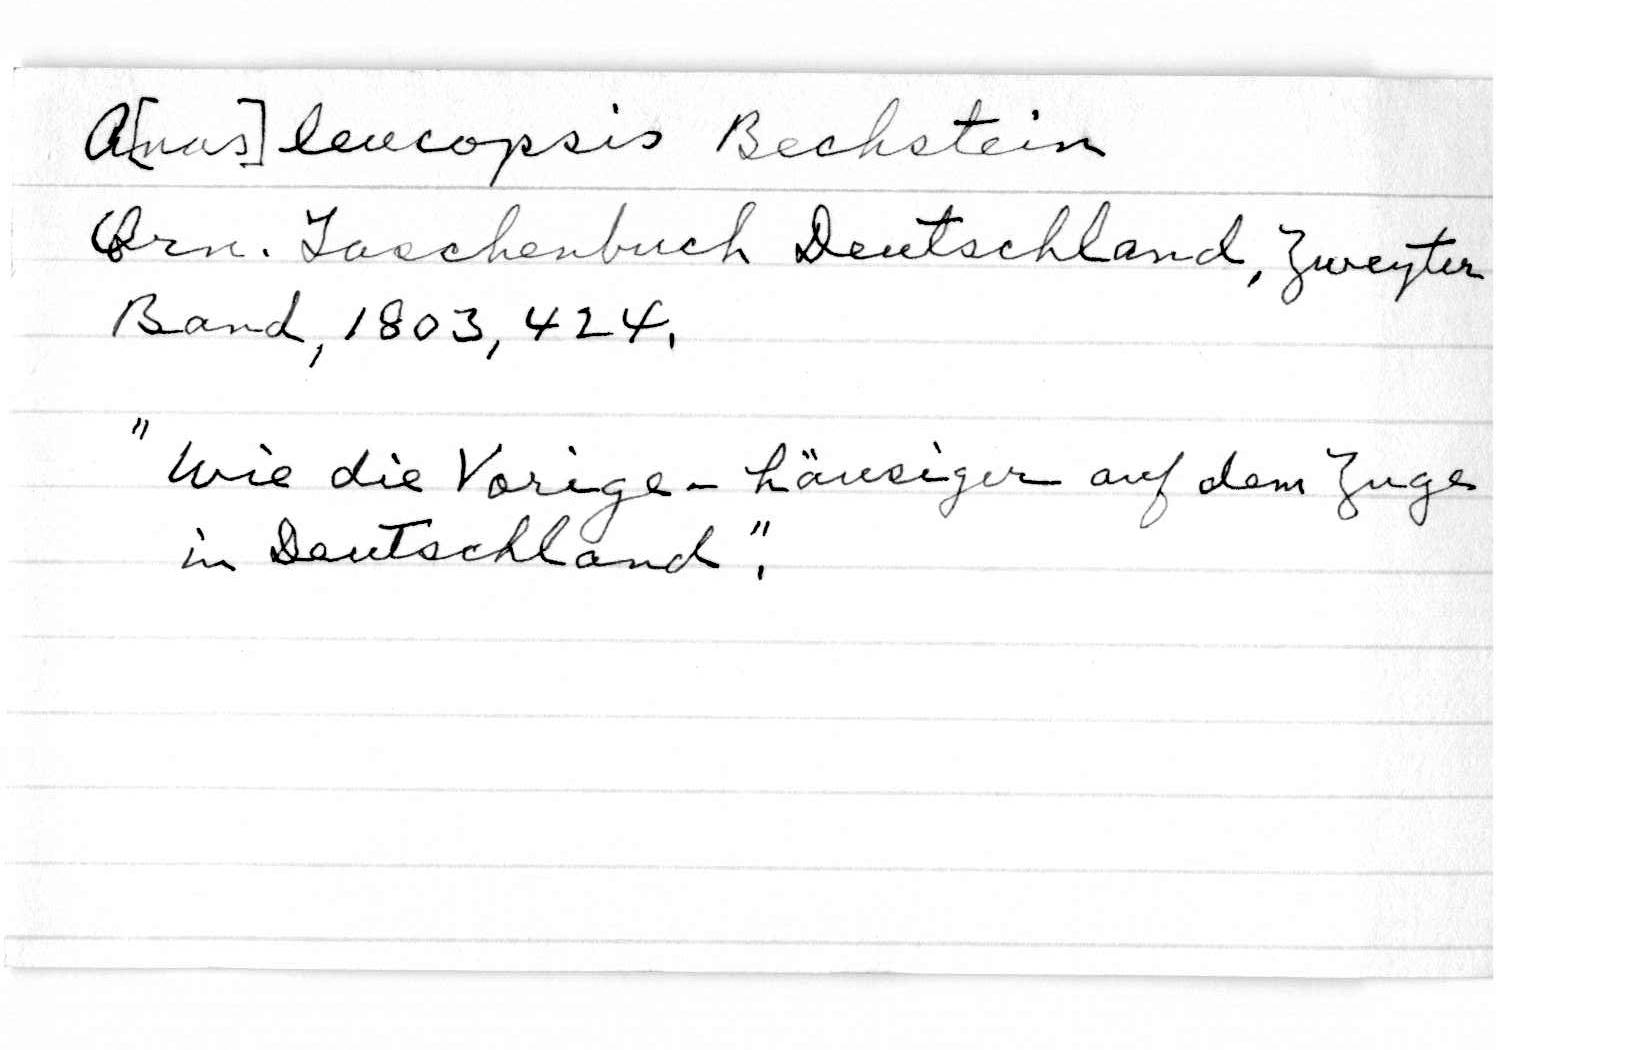 A[nas] leucopsis Bechstein
Orn. Taschenbuch Deutschland, Zweyter
Band, 1803, 424.
"Wie die Vorige - häusiger auf dem Zuge
in Deutschland".